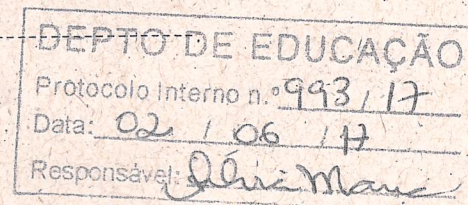 DEPTO DE EDUCAÇÃO
Protocolo Interno n.º 993/17
Data: 02 / 06 / 17
Responsável: